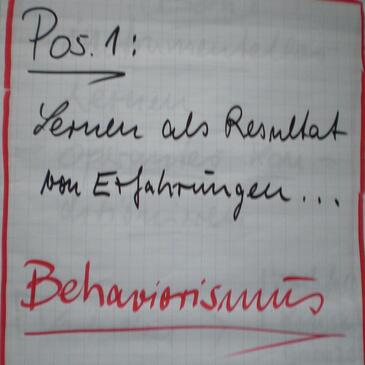 Pos. 1:
Lernen als Resultat
von Erfahrungen...
Behaviorismus